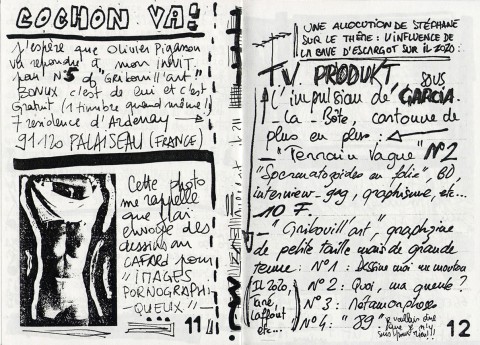 COCHON VA!
J'espère que Olivier Pigasson
va répondre à mon invit.
pari N°5 of "Gribouill'art"
BONUX c'est de lui et c'est
Gratuit (1 timbre quand même!)
7 résidence d'Ardenay
91120 PALAISEAU (FRANCE)
Cette photo
me rappelle
que j'ai
envoyé des
dessins au
CAFARD pour
"IMAGES
PORNOGRAPHI-
QUEUX"
11
UNE ALLOCUTION DE STÉPHANE
SUR LE THÈME : L'INFLUENCE DE
LA BAVE D'ESCARGOT SUR IL 2020:
TV PRODUKT SOUS
L'impulsion de GARCIA
- La Bête, cartonne de
plus en plus :
- "Terrain Vague" N°2
"Spermatozoïdes en folie", BD,
interview-gag, graphisme, etc...
10 F -
- "Gribouill'art", graphzine
de petite taille mais de grande
teneur : N°1 : Dessine moi un mouton
(IL 2020, N°2 : Quoi, ma gueule ?
N°3 : Métamorphoses
etc... N°4 : "89"
je voulais dire
que je n'y
suis pour rien!!!
12